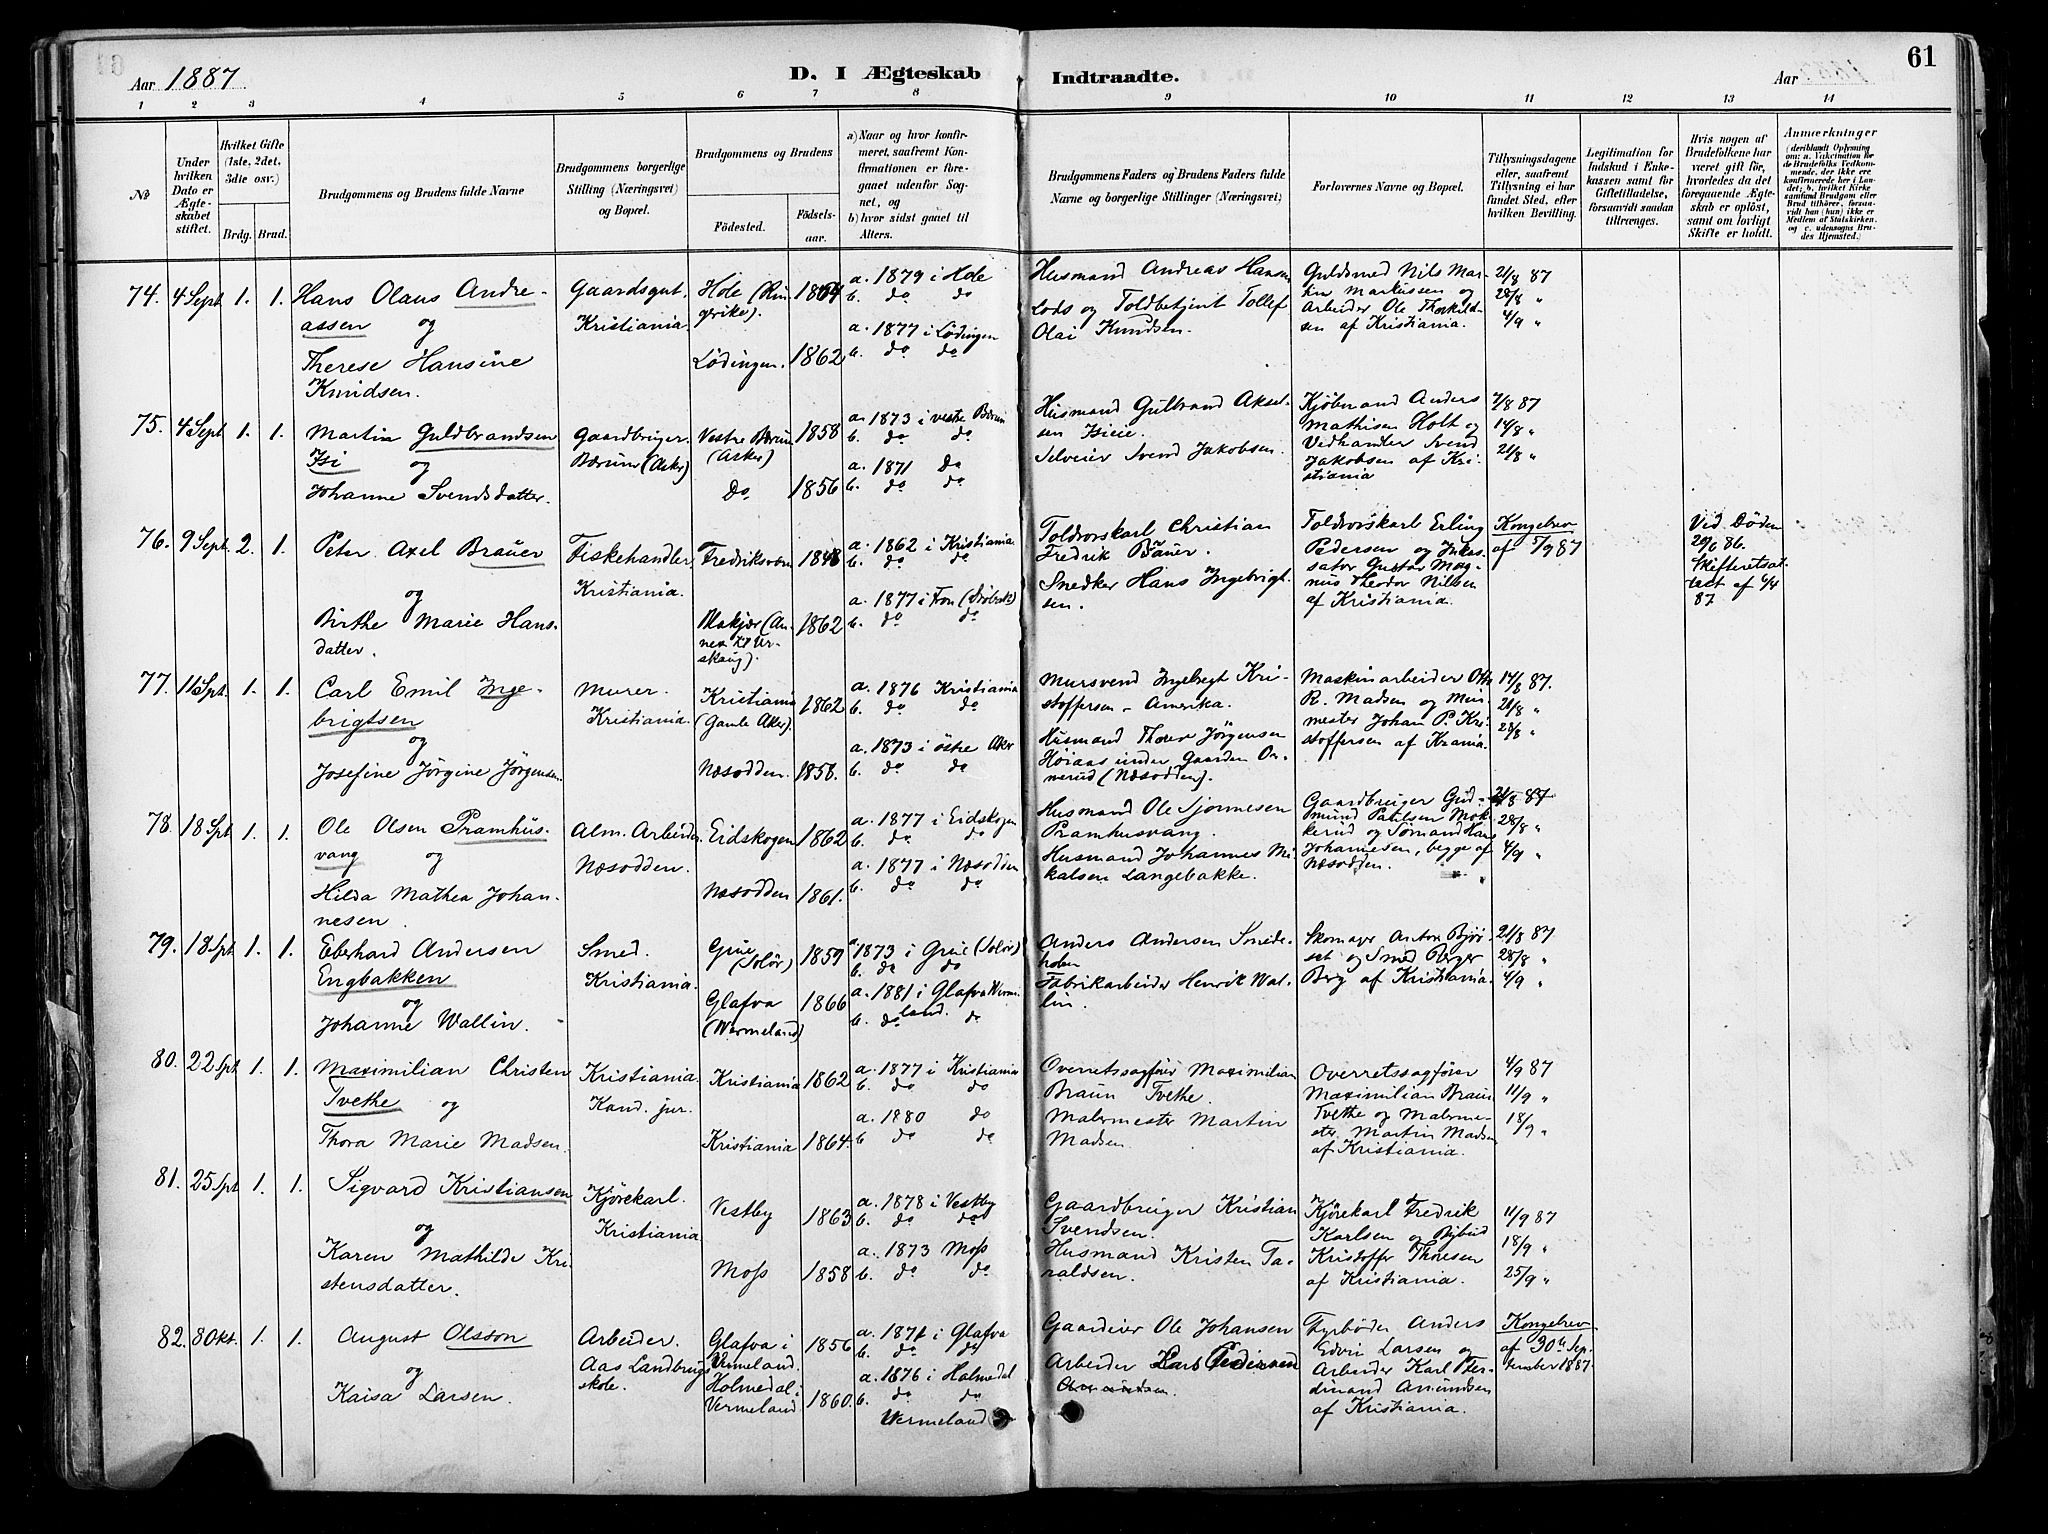 Aar 1887.
D. I Ægteskab Indtraadte.
Aar
61
1 2 3 4 5 6 7 8 9 10 11 12 13 14
No
Under hvilken Dato er Ægteskabet stiftet.
Hvilket Gifte (1ste, 2det, 3die osv.)
Brdg. Brud.
Brudgommens og Brudens fulde Navne
Brudgommens borgerlige Stilling (Næringsvei) og Bopæl.
Brudgommens og Brudens
Fødested.
Fødselsaar.
a) Naar og hvor konfirmeret, saafremt Konfirmationen er foregaaet udenfor Sognet, og
b) hvor sidst gaaet til Alters.
Brudgommens Faders og Brudens Faders fulde Navne og borgerlige Stillinger (Næringsvei)
Forlovernes Navne og Bopæl.
Tillysningsdagene eller, saafremt Tillysning ei har fundet Sted, efter hvilken Bevilling.
Legitimation for Indskud i Enkekassen samt for Giftetilladelse, forsaavidt saadan tiltrænges.
Hvis nogen af Brudefolkene har været gift før, hvorledes da det foregaaende Ægteskab er opløst, samt om lovligt Skifte er holdt.
Anmærkninger
(deriblandt Oplysning om: a. Vakcination for de Brudefolks Vedkommende, der ikke ere konfirmerede her i Landet; b. hvilket Kirkesamfund Brudgom eller Brud tilhører, forsaavidt han (hun) ikke er Medlem af Statskirken, og c. udensogns Brudes Hjemsted.)
74. 4 Sept. 1. 1.
Hans Olaus Andreassen og
Therese Hansine
Knudsen.
Gaardsgut.
Kristiania.
Hole (Ringerike). 1864
Lødingen. 1862
a. 1879 i Hole
b. do do
a. 1877 i Lödingen
b. do do
Husmand Andreas Hansen
Lods og Toldbetjent Tollef
Olai Knudsen.
Guldsmed Nils Martin Markussen og
Arbeider Ole Thorkildsen af Kristiania.
21/8 87
28/8 "
4/9 "
75. 4 Sept 1. 1.
Martin Guldbrandsen
Isi og
Johanne Svendsdatter.
Gaardbruger.
Bærum (Asker)
Vestre Bærum (Asker) 1858
Do 1856
a. 1873 i vestre Bærum
b. do do
a. 1871 Do
b. do do
Husmand Gulbrand Akselsen Isieie.
Selveier Svend Jakobsen.
Kjøbmand Anders
Mathisen Holt og
Vedhandler Svend
Jakobsen af Kristiania
7/8 87
14/8 "
21/8 "
76. 9 Sept. 2. 1.
Peter Axel Brauer
og
Birthe Marie Hansdatter.
Fiskehandler
Kristiania.
Fredriksværn 1848
1862
a. 1862 i Kristiania
b. do do
a. 1877 i Fron (Drøbak)
b. do do
Toldrorskarl Christian
Fredrik Bauer.
Snedker Hans Ingebrigtsen.
Toldrorskarl Erling
Pedersen og Inkassator Gustav Magnus Theodor Nilsen
af Kristiania.
Kongebrev
af 5/9 87
Ved Døden
29/6 86.
Skifteretsattest af 6/4
87
77. 11 Spt. 1. 1.
Carl Emil Ingebrigtsen
og
Josefine Jörgine Jörgensen.
Murer.
Kristiania.
Kristiania (Gamle Aker) 1862
Næsodden. 1858.
a. 1876 Kristiania
b. do do
a. 1873 i östre Aker
b. do do
Mursvend Ingebregt Kristoffersen - Amerika.
Husmand Thorer Jörgensen
Höiaas under Gaarden (Næsodden).
Maskinarbeider Otto
R. Madsen og Murmester Johan P. Kristoffersen af Krania.
14/8 87.
21/8 "
28/8 "
78. 18 Spt 1. 1.
Ole Olsen Pramhusvang og
Hilda Mathea Johannesen.
Alm. Arbeider.
Næsodden.
Eidskogen 1862
Næsodden 1861.
a. 1877 i Eidskogen
b. do do
a. 1877 i Næsodden
b. do do
Husmand Ole
Pramhusvang.
Husmand Johannes Mikalsen Langebakke.
Gaardbruger Gudmund Paulsen Mokkerud og Sømand Hans
Johannesen, begge af
Næsodden.
21/8 87
28/8 "
4/9 "
79. 18 Spt 1. 1.
Eberhard Andersen
Engbakken
og
Johanne Wallin.
Smed.
Kristiania.
Grue (Solör) 1859
Glafva (Wermeland) 1866
a. 1873 i Grue (Solör)
b. do do
a. 1881 i Glafva Wermeland.
b. do do
Anders Andersen
Fabrikarbeider Henrik Wallin.
Skomager Anton Bjørset og Smed Birger
Berg af Kristiania.
21/8 87
28/8 "
4/9 "
80. 22 Spt 1. 1.
Maximilian Christen
Tvethe og
Thora Marie Madsen.
Kristiania.
Kand. jur.
Kristiania 1862
Kristiania 1864.
a. 1877 i Kristiania
b. do do
a. 1880 do
b. do do
Overretssagfører Maximilian
Braun Tvethe.
Malermester Martin
Madsen.
Overretssagfører
Maximilian Braun
Tvethe og Malermester Martin Madsen
af Kristiania.
4/9 87
11/9 "
18/9 "
81. 25 Spt 1. 1.
Sigvard Kristiansen
og
Karen Mathilde Kristensdatter.
Kjørekarl.
Kristiania.
Vestby 1863
Moss 1858
a. 1878 i Vestby
b. do do
a. 1873 Moss
b. do do
Gaardbruger Kristian
Svendsen.
Husmand Kristen Taraldsen.
Kjørekarl Fredrik
Karlsen og Bybud
Kristoffer Thoresen
af Kristiania.
11/9 87
18/9 "
25/9 "
82. 8 Okt. 1. 1.
August Olsson
og
Kaisa Larsen.
Arbeider.
Aas Landbrugsskole.
Glafva i Vermeland. 1856
Holmedal i Vermeland 1860.
a. 1871 i Glafva
b. do do
a. 1876 i Holmedal
b. do do
Vermeland
Gaardeier Ole Johansen
Arbeider Lars Pedersen
Fyrbøder Anders
Edvin Larsen og
Arbeider Karl Ferdinand Amundsen
af Kristiania.
Kongebrev
af 30te September 1887